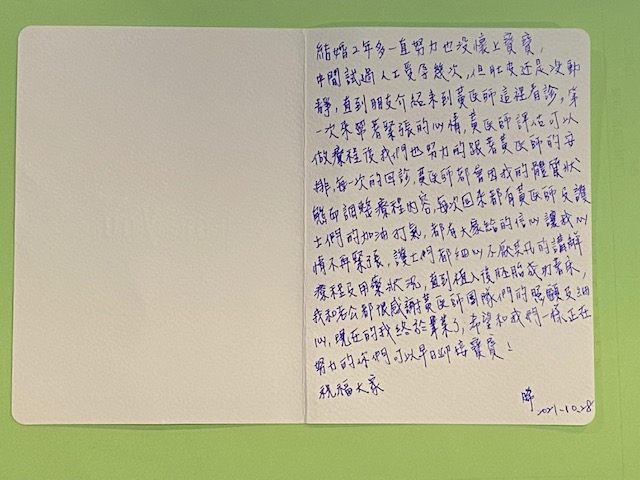 結婚2年多一直努力也沒懷上寶寶,
中間試過人工受孕幾次,但肚皮还是沒動
靜,直到朋友介紹來到黃医師這裡看診,第
一次來帶著緊張的心情,黃医師評估可以
做療程後我們也努力的跟著黃医師的安
排,每一次的回診,黃医師都會因我的體質狀
態而調整療程內容,每次回來都有黃医師及護
士們的加油打氣,都有大家給的信心讓我心
情不再緊張,護士們都細心不厭其凡的講解
療程及用藥狀況,直到植入後胚胎成功著床,
我和老公都很感謝黃医師團隊們的照顧及細
心,現在的我終於畢業了,希望和我們一樣正在
努力的你們可以早日迎接寶寶!
祝福大家
2021-10.28